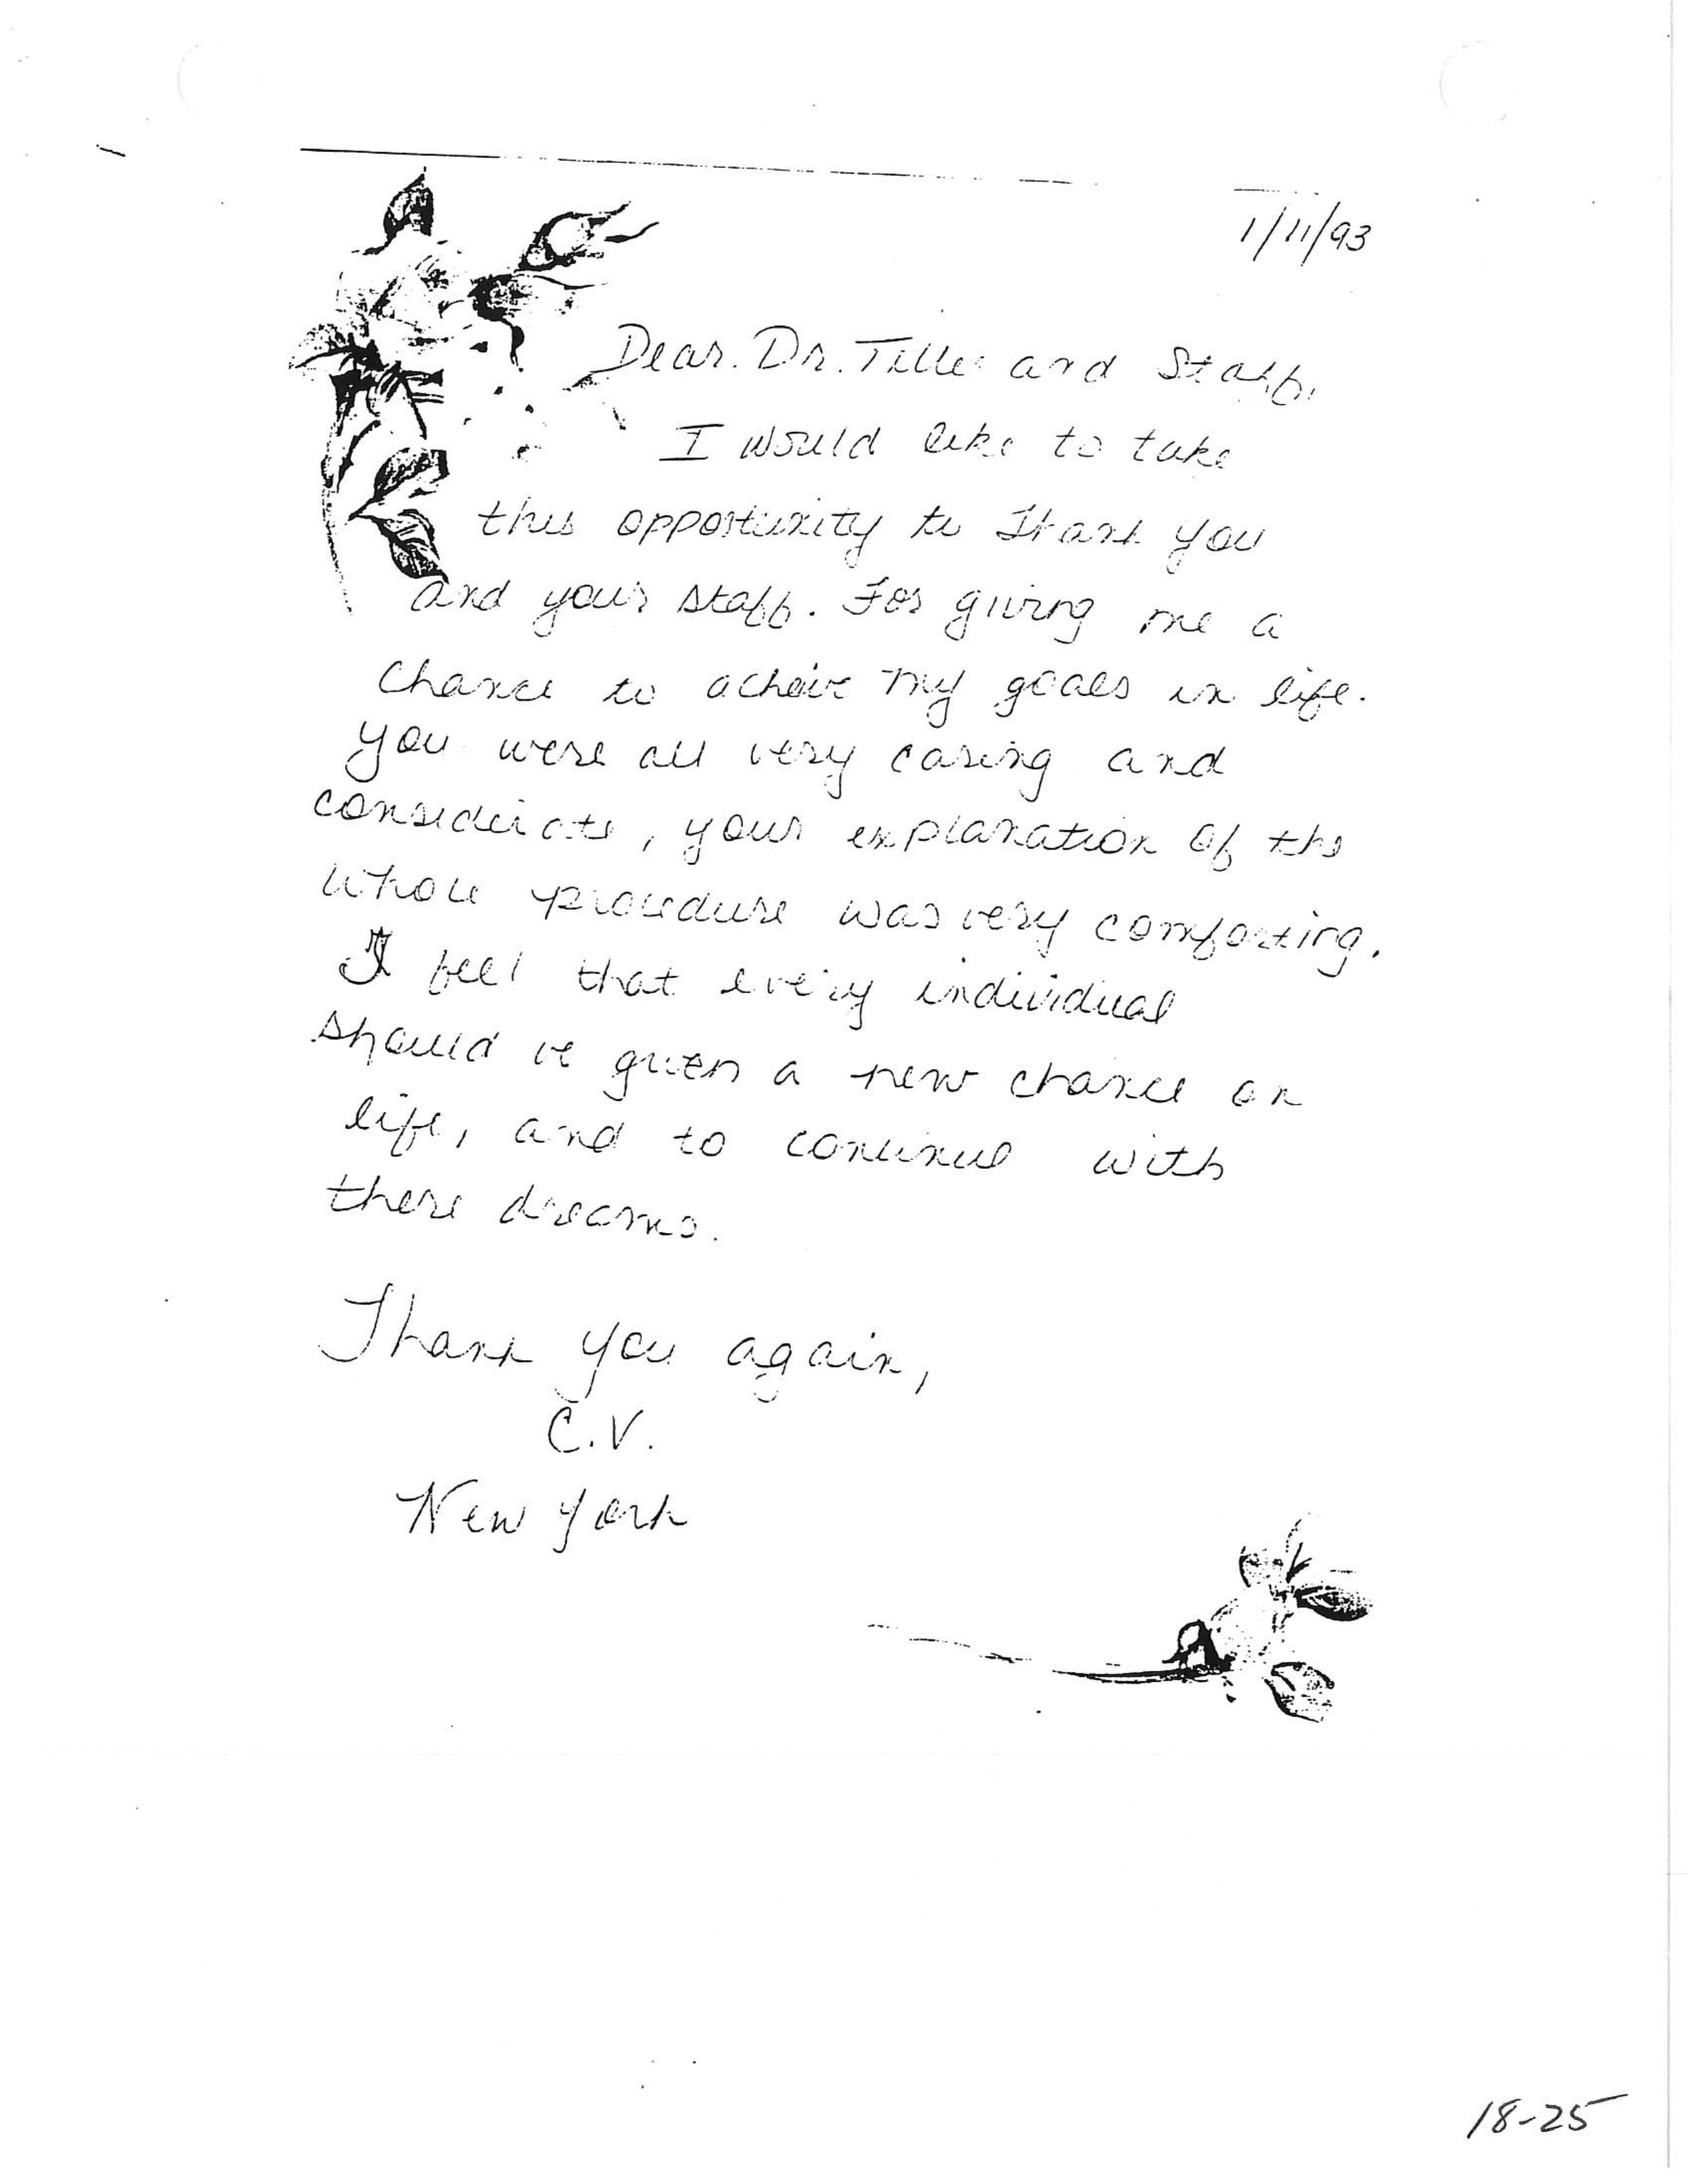 1/11/93
Dear. Dr. Tiller and Staff,
I would like to take
this opportunity to Thank you
and your staff. For giving me a
chance to acheive my goals in life.
you were all very caring and
considerate, your explanation of the
whole procedure was very comforting.
I feel that every individual
should be given a new chance on
life, and to continue with
there dreams.
Thank you again,
C.V.
New York
18-25